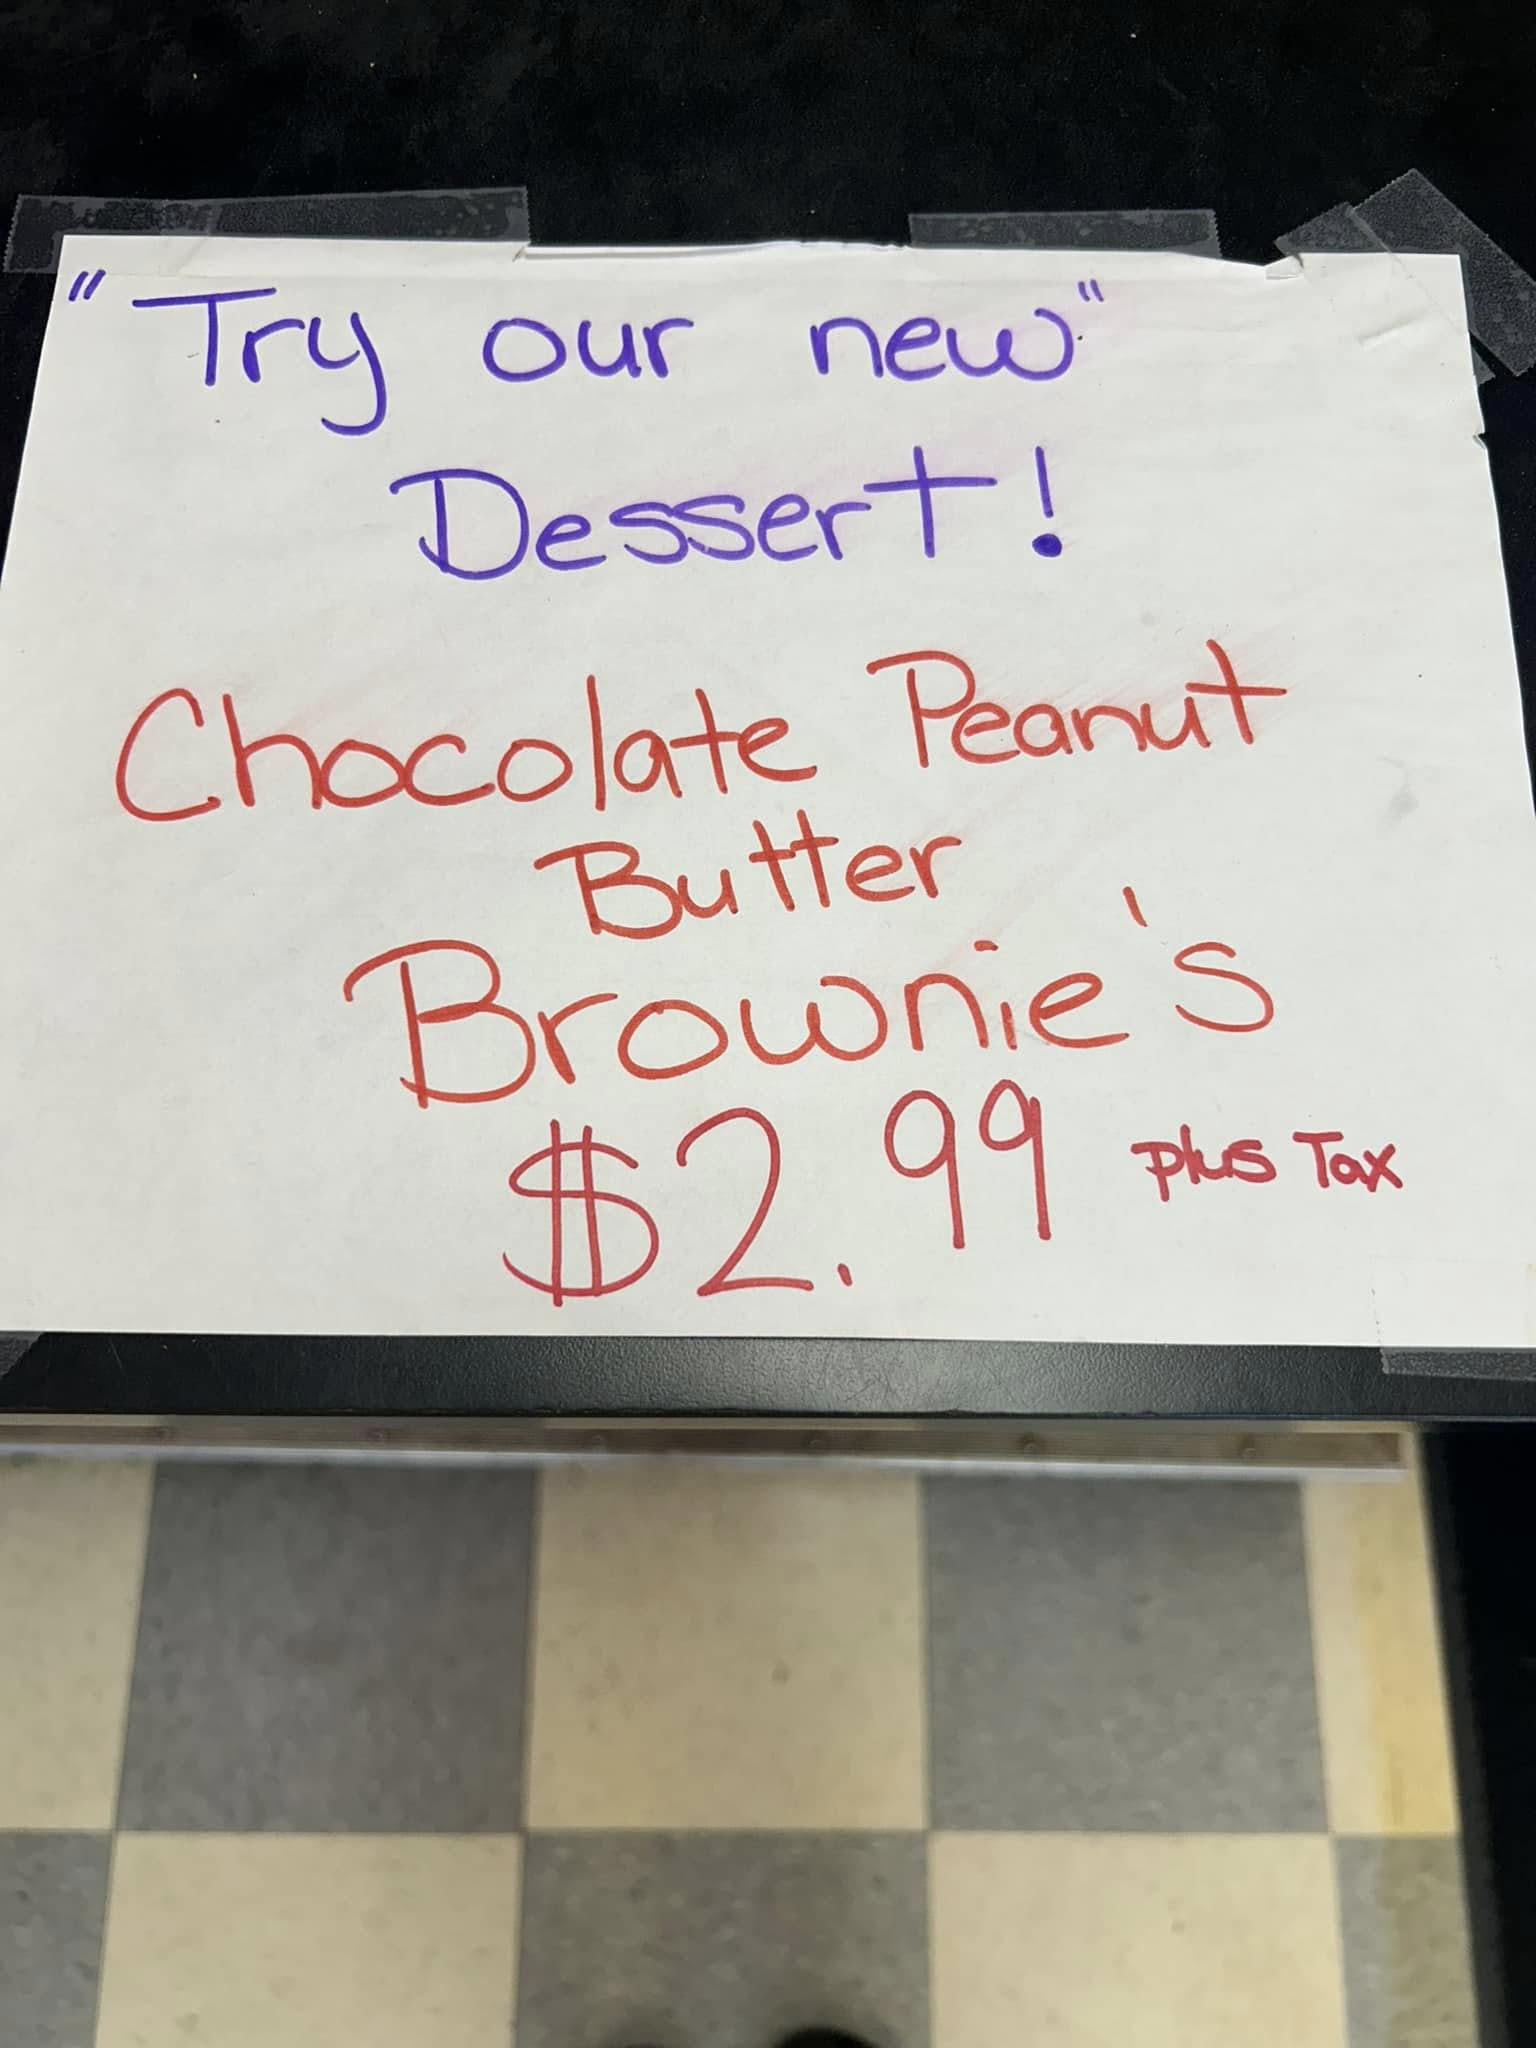 "Try our new"
Dessert!
Chocolate Peanut
Butter
Brownie's
$2.99 plus Tax